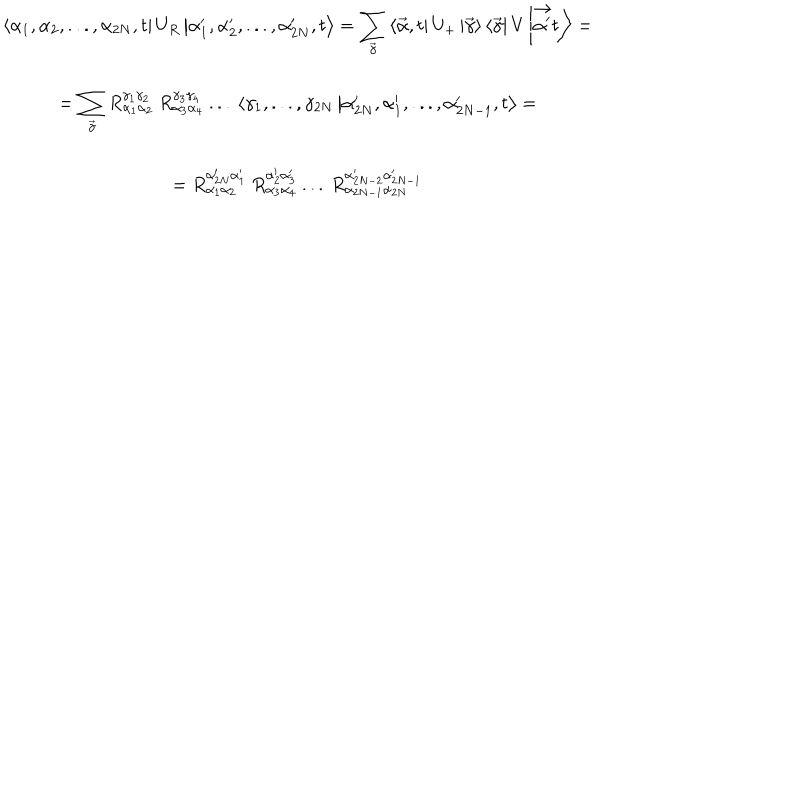 \langle \alpha_1, \alpha_2, ..., \alpha_{2N}, t | U_R | \alpha'_1, \alpha'_2, ..., \alpha'_{2N}, t \rangle = \sum_{\vec{\gamma}} \langle \vec{\alpha}, t | U_+ | \vec{\gamma} \rangle \langle \vec{\gamma} | V | \overrightarrow{\alpha'} t \rangle =
= \sum_{\vec{\gamma}} R^{\gamma_1 \gamma_2}_{\alpha_1 \alpha_2} R^{\gamma_3 \gamma_4}_{\alpha_3 \alpha_4} ... \langle \gamma_1, ..., \gamma_{2N} | \alpha'_{2N}, \alpha'_1, ..., \alpha'_{2N-1}, t \rangle =
= R^{\alpha'_{2N} \alpha'_1}_{\alpha_1 \alpha_2} R^{\alpha'_2 \alpha'_3}_{\alpha_3 \alpha_4} ... R^{\alpha'_{2N-2} \alpha'_{2N-1}}_{\alpha_{2N-1} \alpha_{2N}}